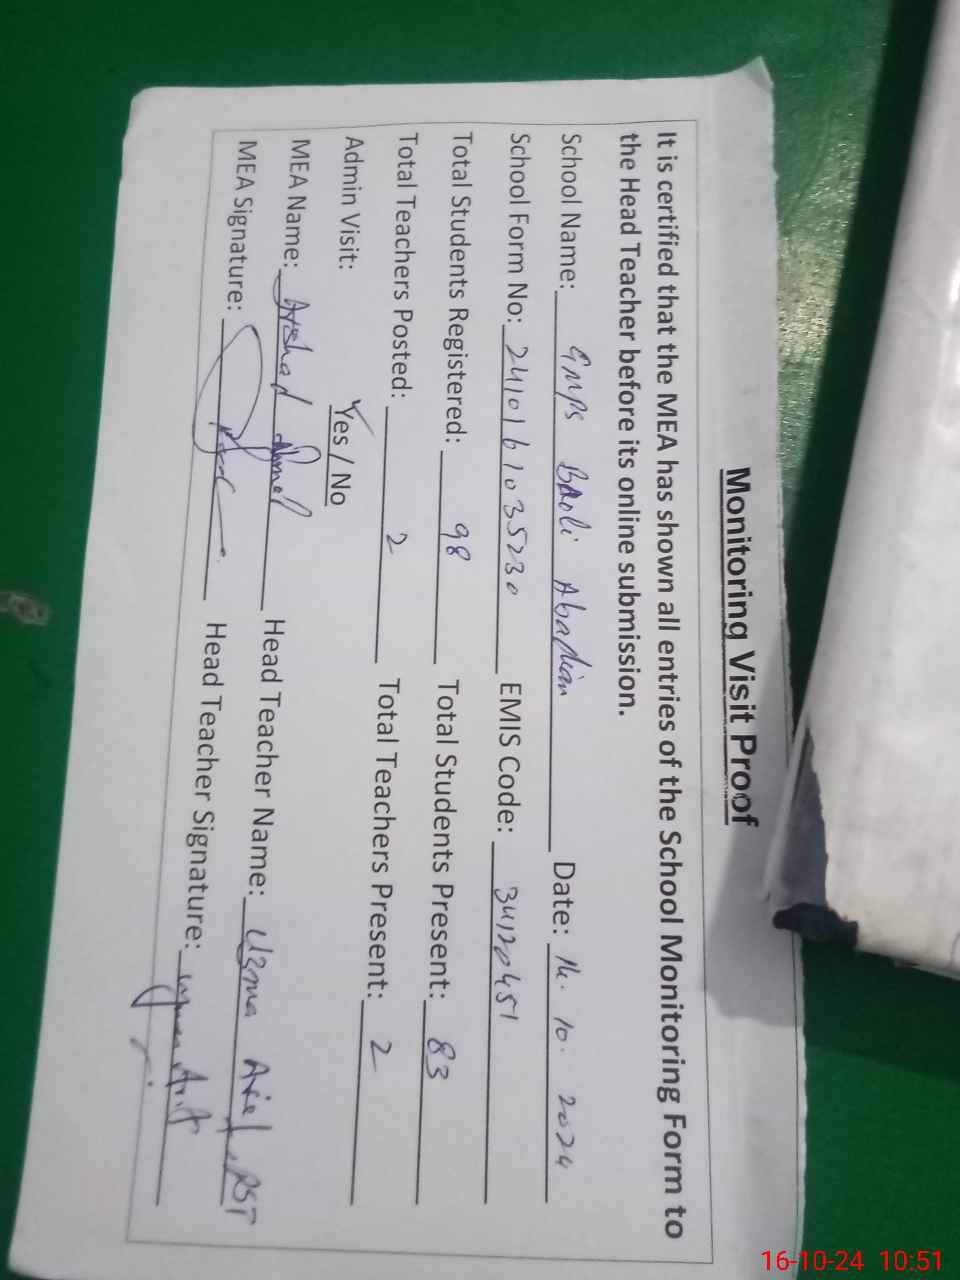 Monitoring Visit Proof
It is certified that the MEA has shown all entries of the School Monitoring Form to
the Head Teacher before its online submission.
School Name: GMPS BAoli Abadian Date: 16. 10. 2024
School Form No: 2410161035230 EMIS Code: 34120451
Total Students Registered: 98 Total Students Present: 83
Total Teachers Posted: 2 Total Teachers Present: 2
Admin Visit: Yes / No
MEA Name: Arshad Head Teacher Name: Uzma PST
MEA Signature: Head Teacher Signature:
16-10-24 10:51